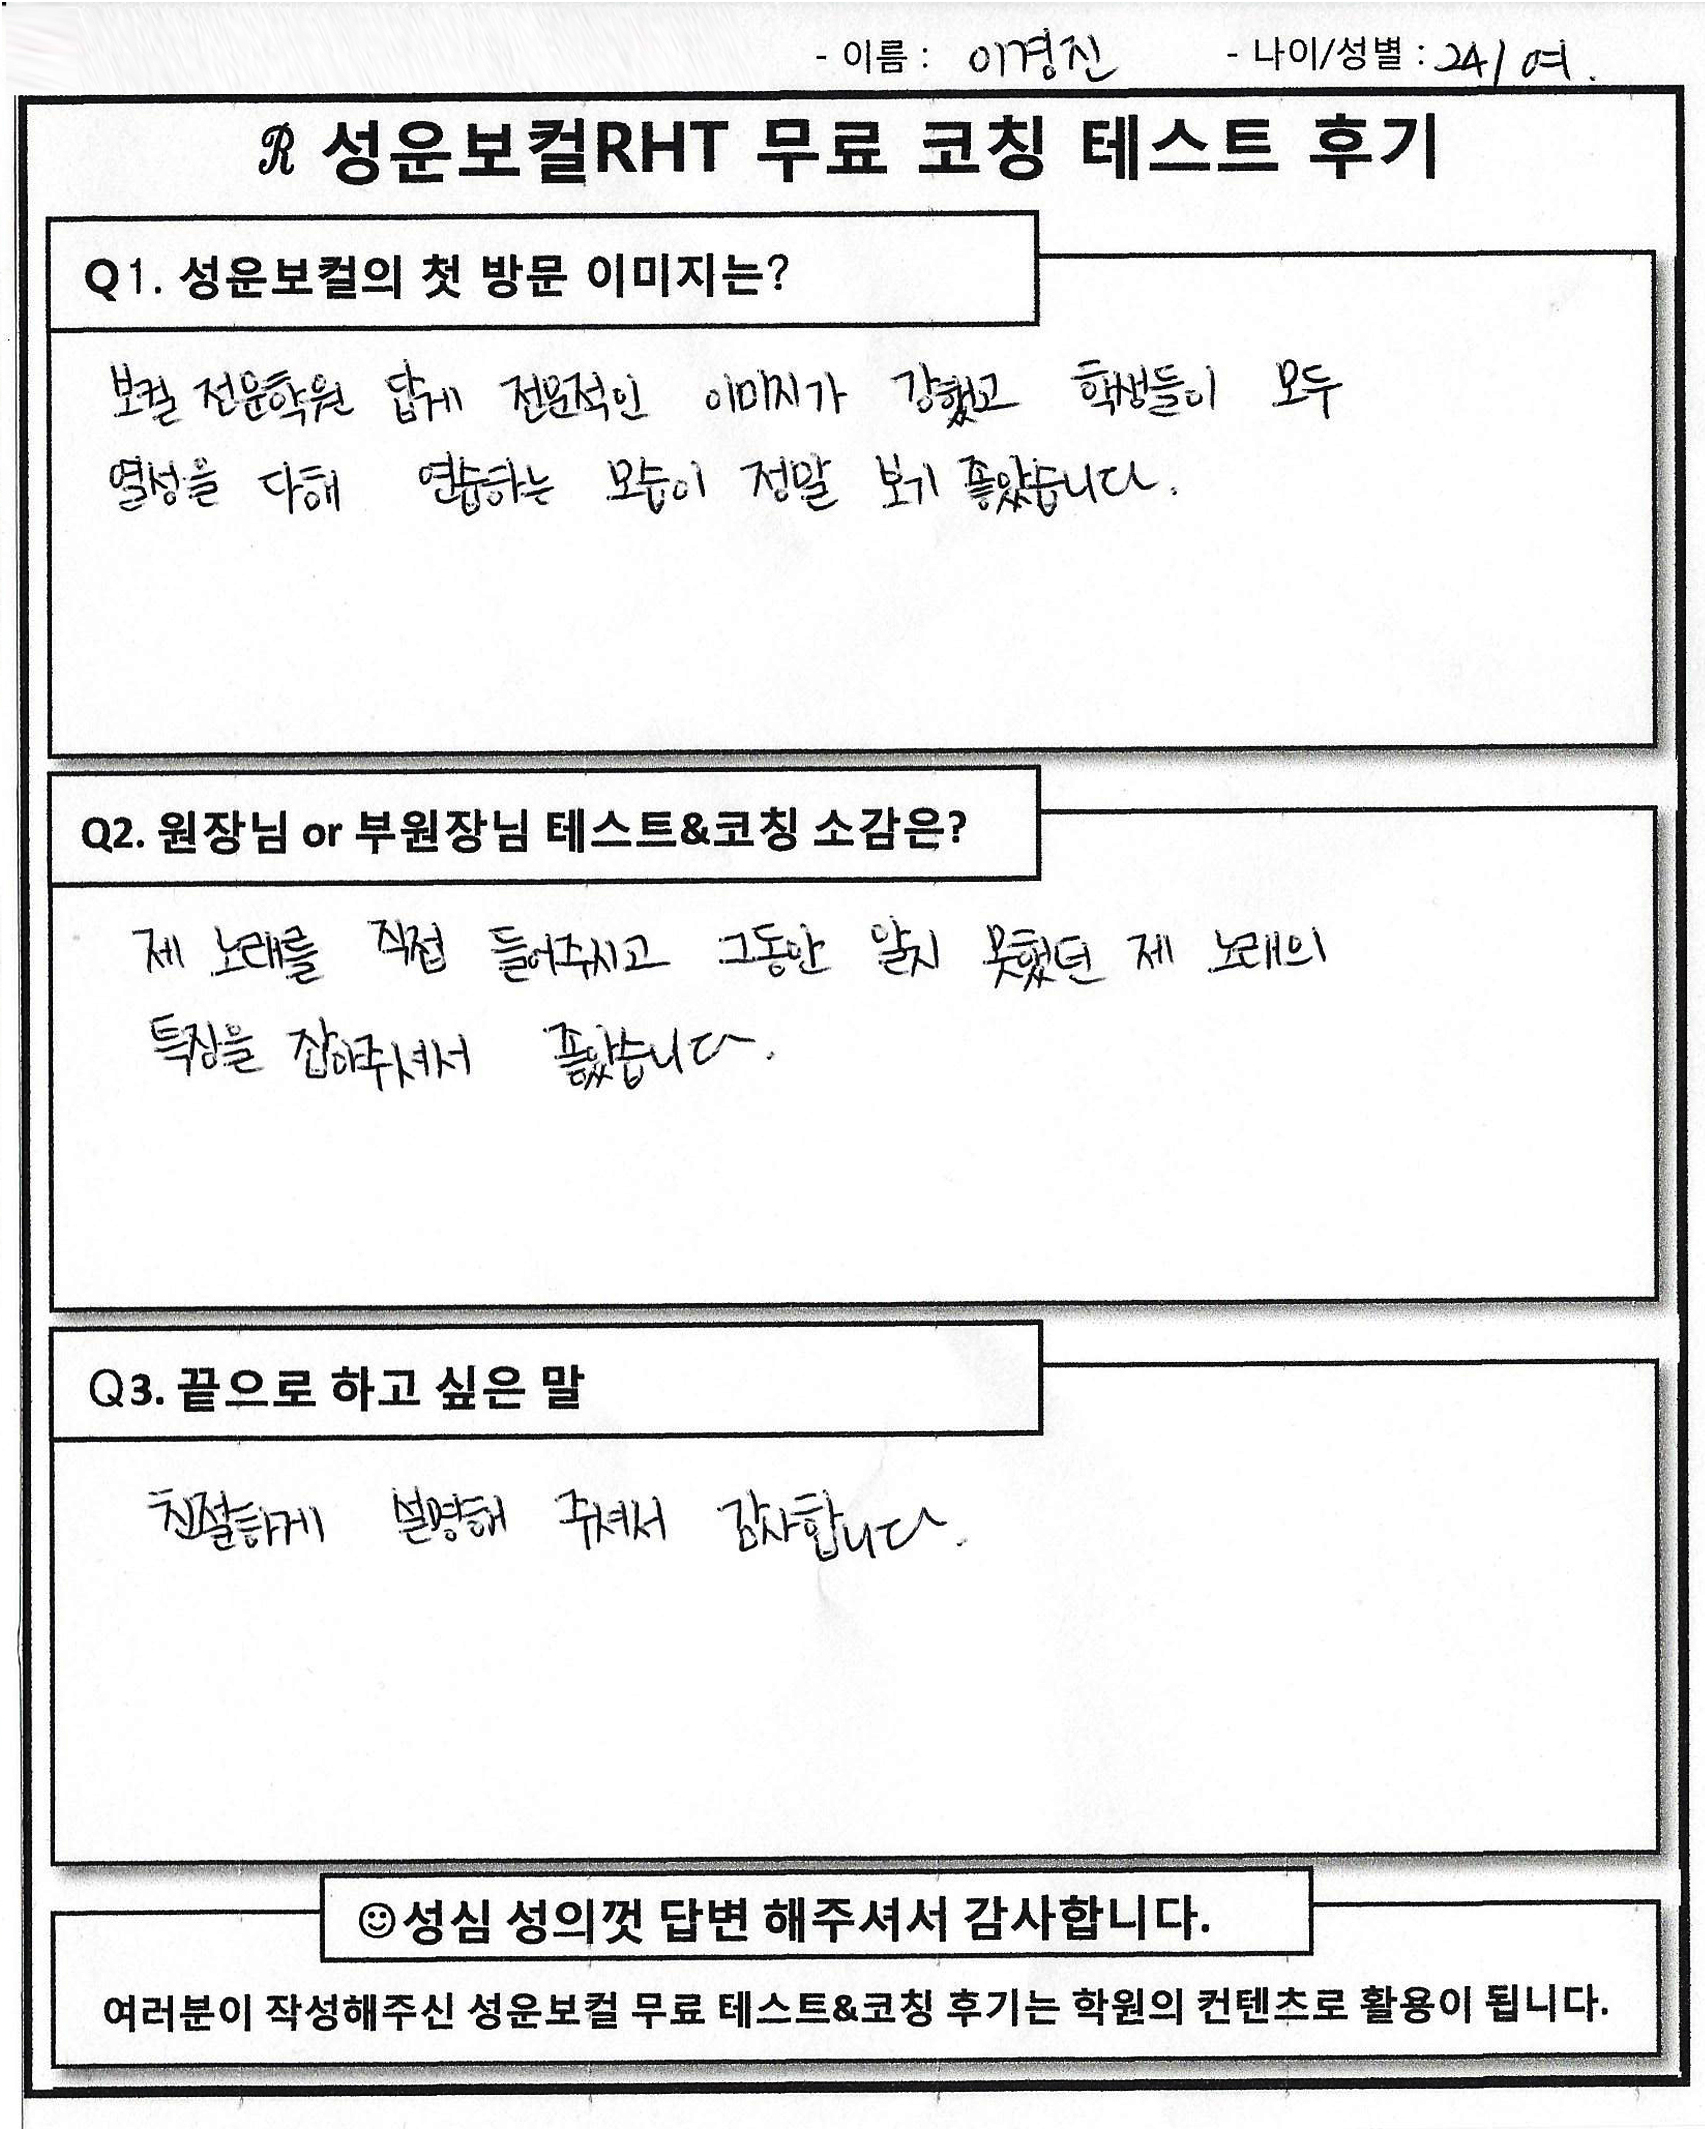 - 이름 : 이경진 - 나이/성별 : 24 / 여.
ℛ 성운보컬RHT 무료 코칭 테스트 후기
Q1. 성운보컬의 첫 방문 이미지는?
보컬 전문학원 답게 전문적인 이미지가 강했고 학생들이 모두
열성을 다해 연습하는 모습이 정말 보기 좋았습니다.
Q2. 원장님 or 부원장님 테스트&코칭 소감은?
제 노래를 직접 들어주시고 그동안 알지 못했던 제 노래의
특징을 잡아주셔서 좋았습니다.
Q3. 끝으로 하고 싶은 말
친절하게 설명해 주셔서 감사합니다.
☺성심 성의껏 답변 해주셔서 감사합니다.
여러분이 작성해주신 성운보컬 무료 테스트&코칭 후기는 학원의 컨텐츠로 활용이 됩니다.